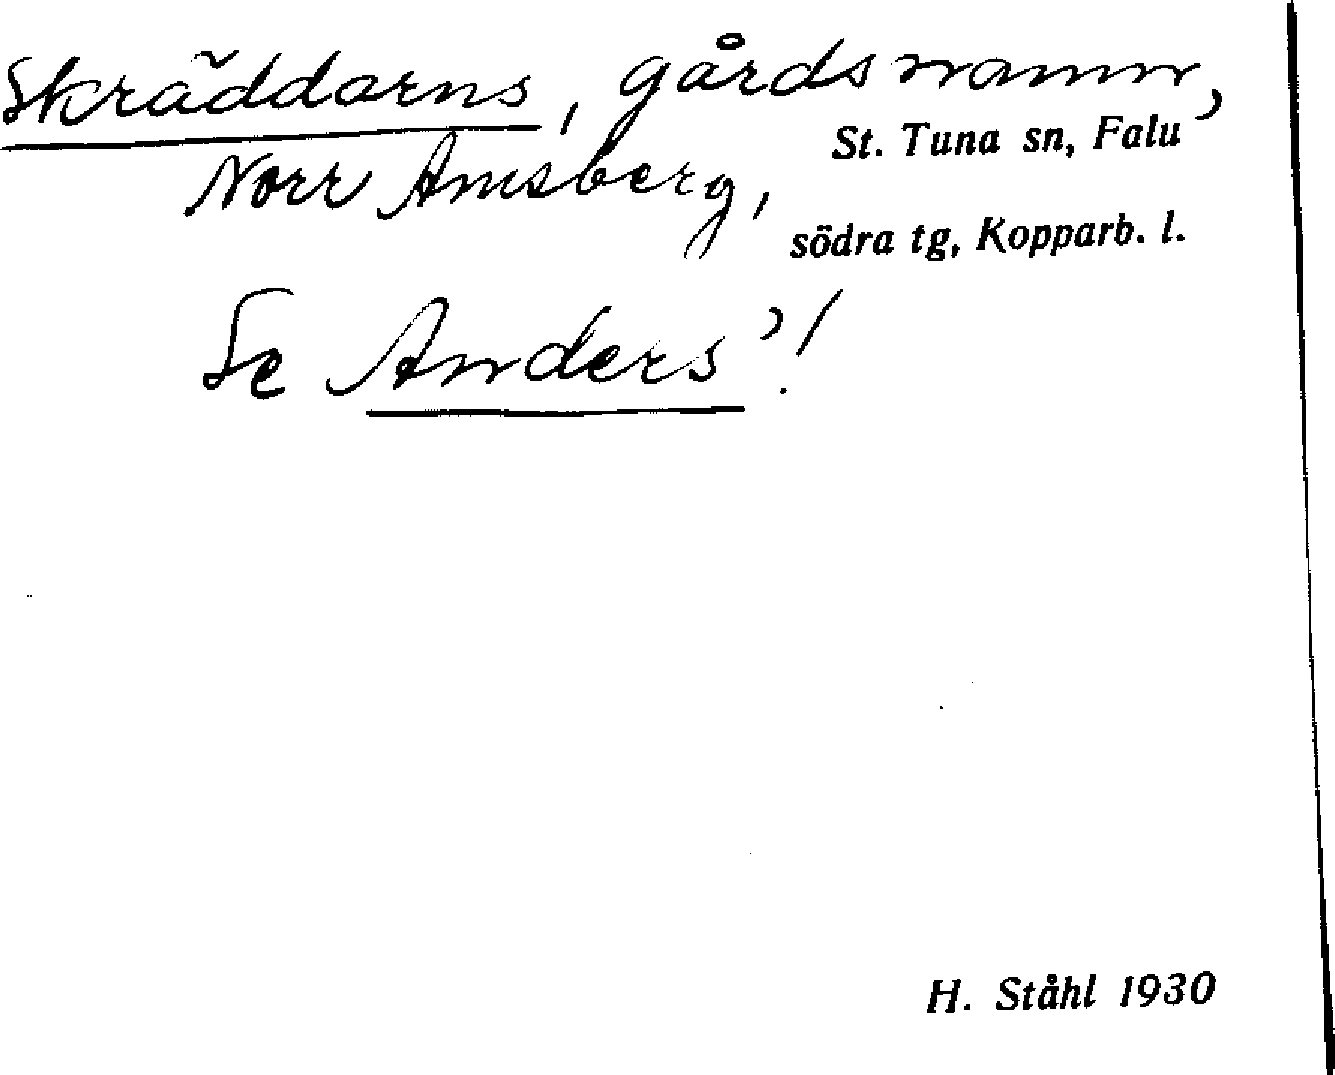 Skräddarns, gårdsnamn,
St. Tuna sn, Falu
Norr Amsberg,
södra tg, Kopparb. l.
Se Anders'!
H. Ståhl 1930